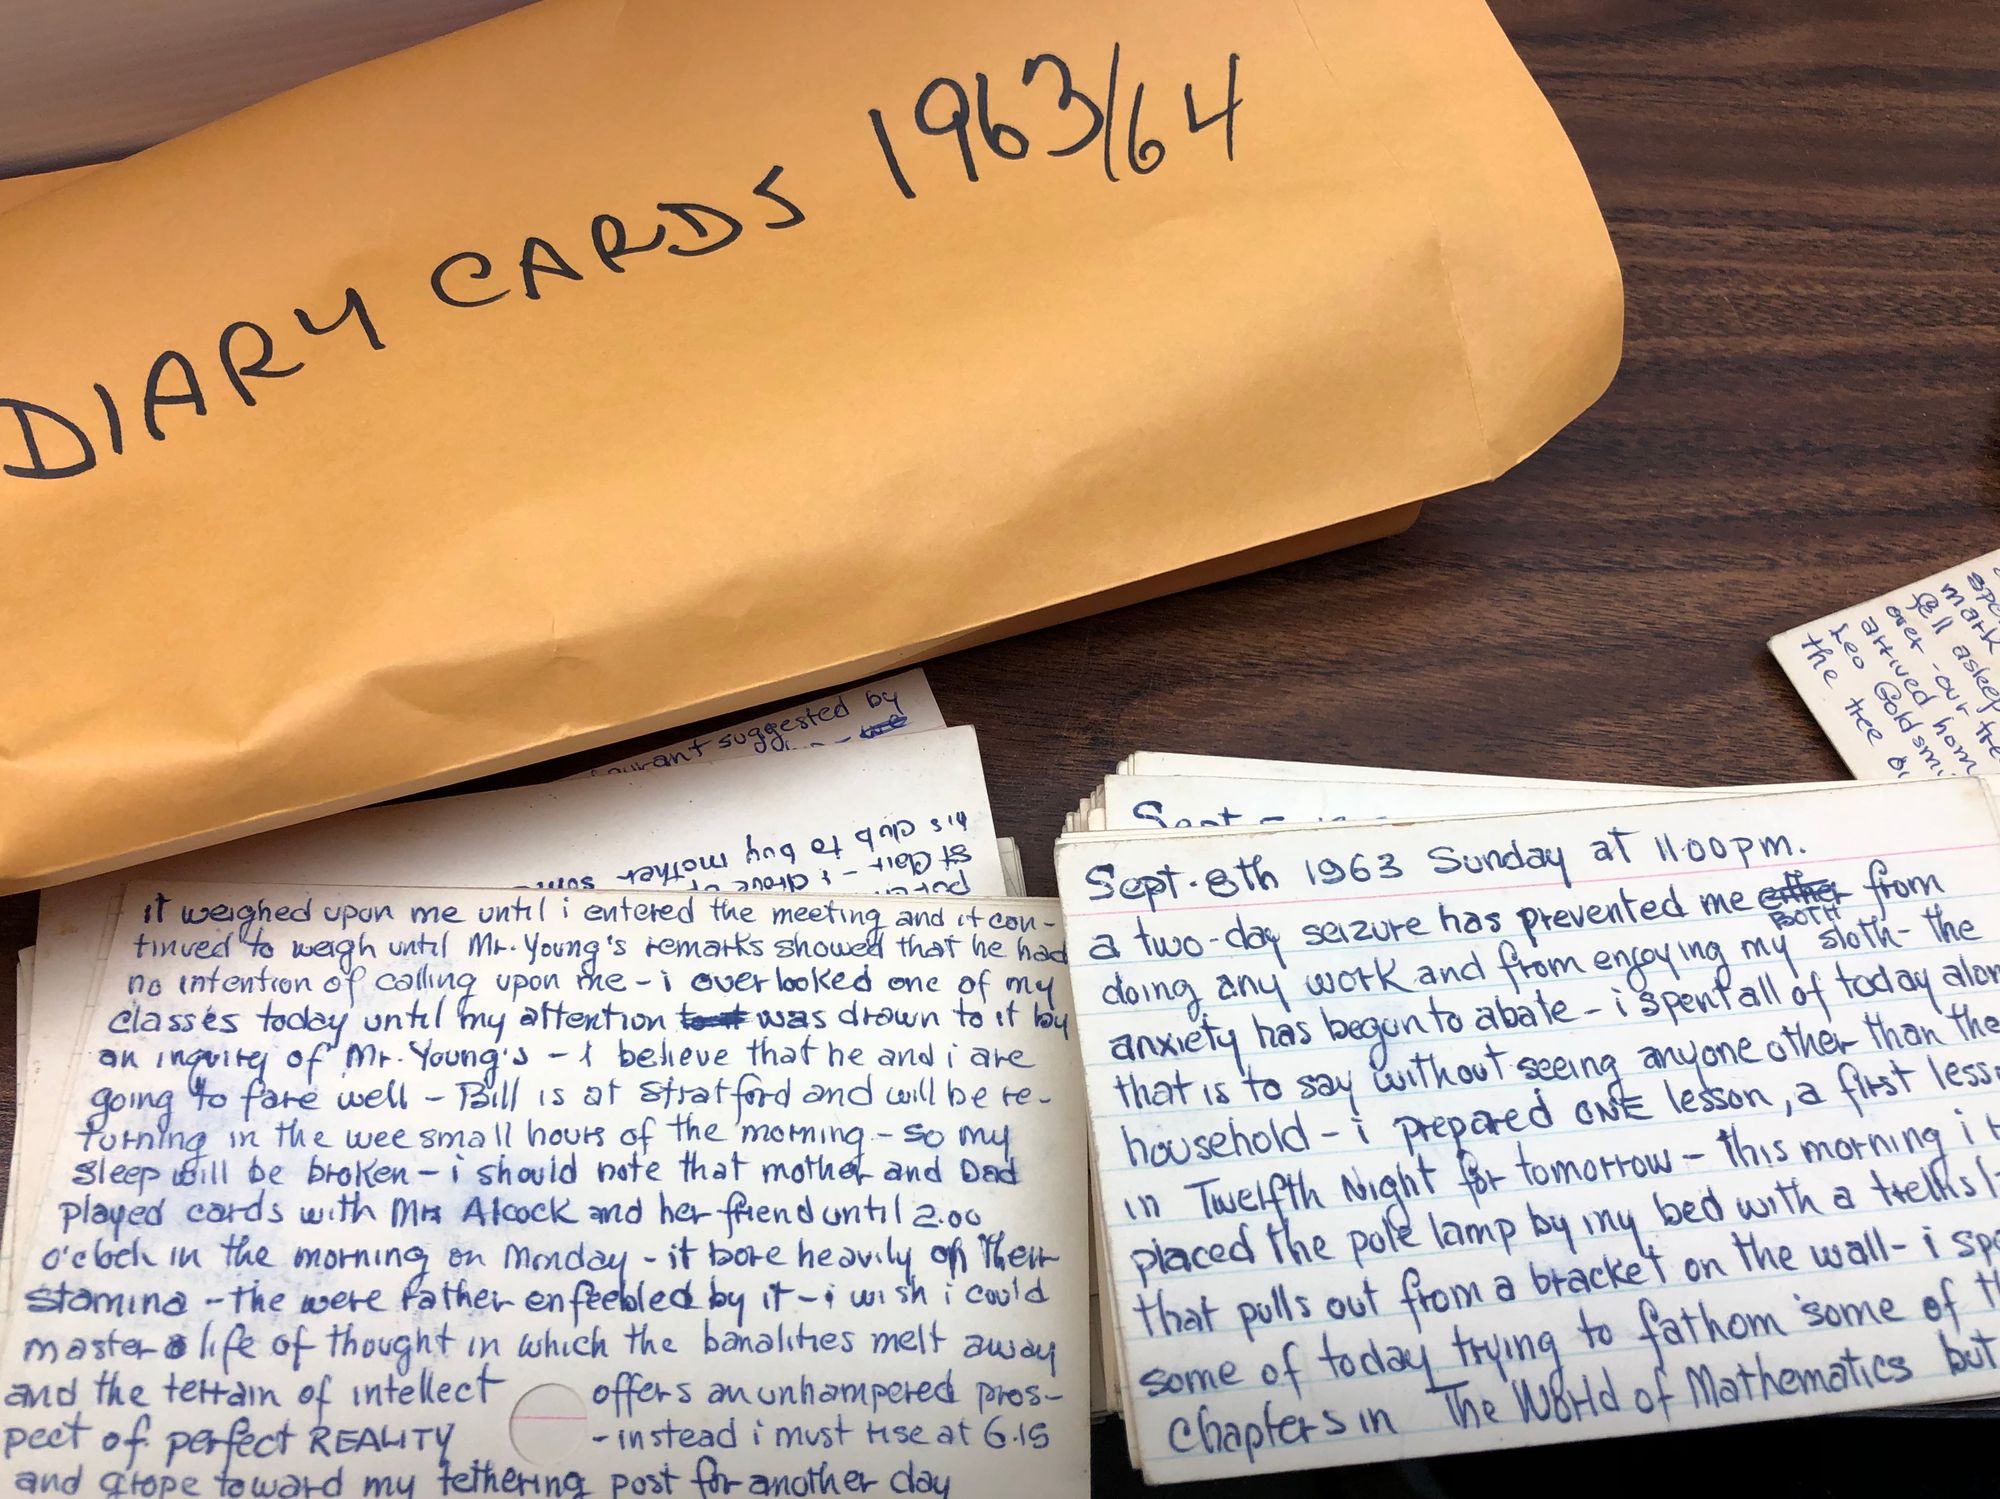 DIARY CARDS 1963/64
suggested by
his club to buy mother
it weighed upon me until i entered the meeting and it con-
tinued to weigh until Mr. Young's remarks showed that he had
no intention of calling upon me - i overlooked one of my
classes today until my attention was drawn to it by
an inquirey of Mr. Young's - I believe that he and i are
going to fare well - Bill is at Stratford and will be re-
turning in the wee small hours of the morning - so my
sleep will be broken - i should note that mother and Dad
played cards with Mrs Alcock and her friend until 2.00
o'clock in the morning on Monday - it bore heavily on their
stamina - the were rather enfeebled by it - i wish i could
master a life of thought in which the banalities melt away
and the terrain of intellect offers an unhampered pros-
pect of perfect REALITY - instead i must rise at 6.15
and grope toward my tethering post for another day
Sept. 8th 1963 Sunday at 11.00 pm.
a two-day seizure has prevented me either BOTH from
doing any work and from enjoying my sloth - the
anxiety has begun to abate - i spent all of today alon
that is to say without seeing anyone other than the
household - i prepared ONE lesson, a first less
in Twelfth Night for tomorrow - this morning i
placed the pole lamp by my bed with a
that pulls out from a bracket on the wall - i sp
some of today trying to fathom some of th
chapters in The World of Mathematics but
mark
fell asleep
over - our tre
arrived hom
Leo Goldsmi
the tree